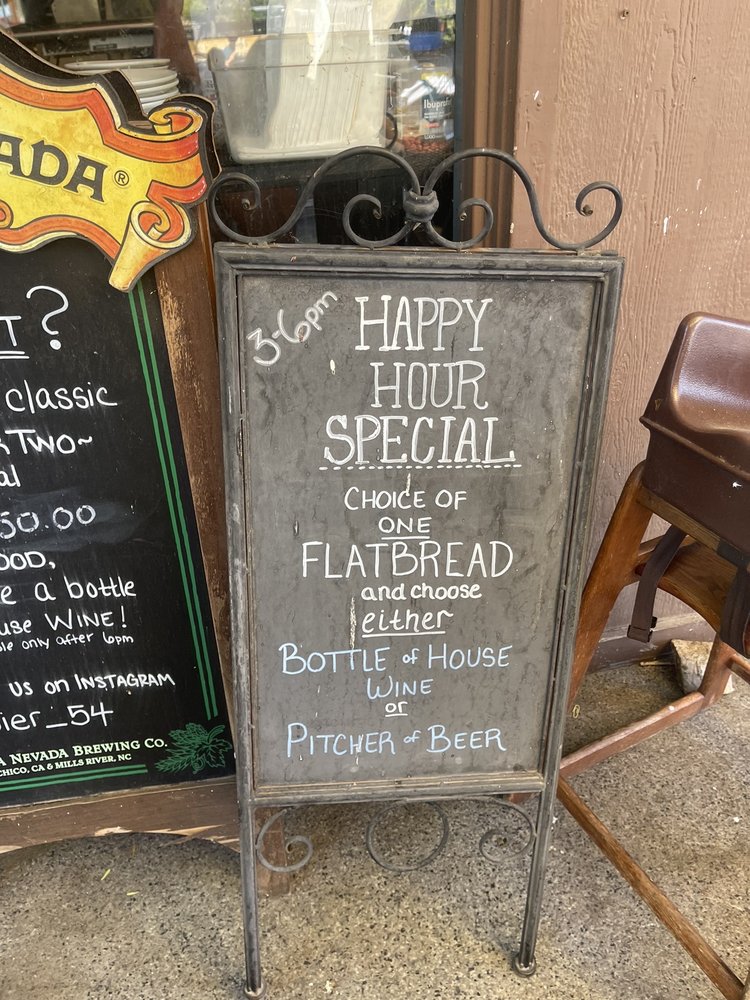 ADA®
T?
classic
TWO~
al
50.00
OOD,
e a bottle
use WINE!
ble only after 6pm
us on INSTAGRAM
ier_54
A NEVADA BREWING CO.
CHICO, CA & MILLS RIVER, NC
3-6pm
HAPPY
HOUR
SPECIAL
CHOICE OF
ONE
FLATBREAD
and choose
either
BOTTLE of HOUSE
WINE
or
PITCHER of BEER